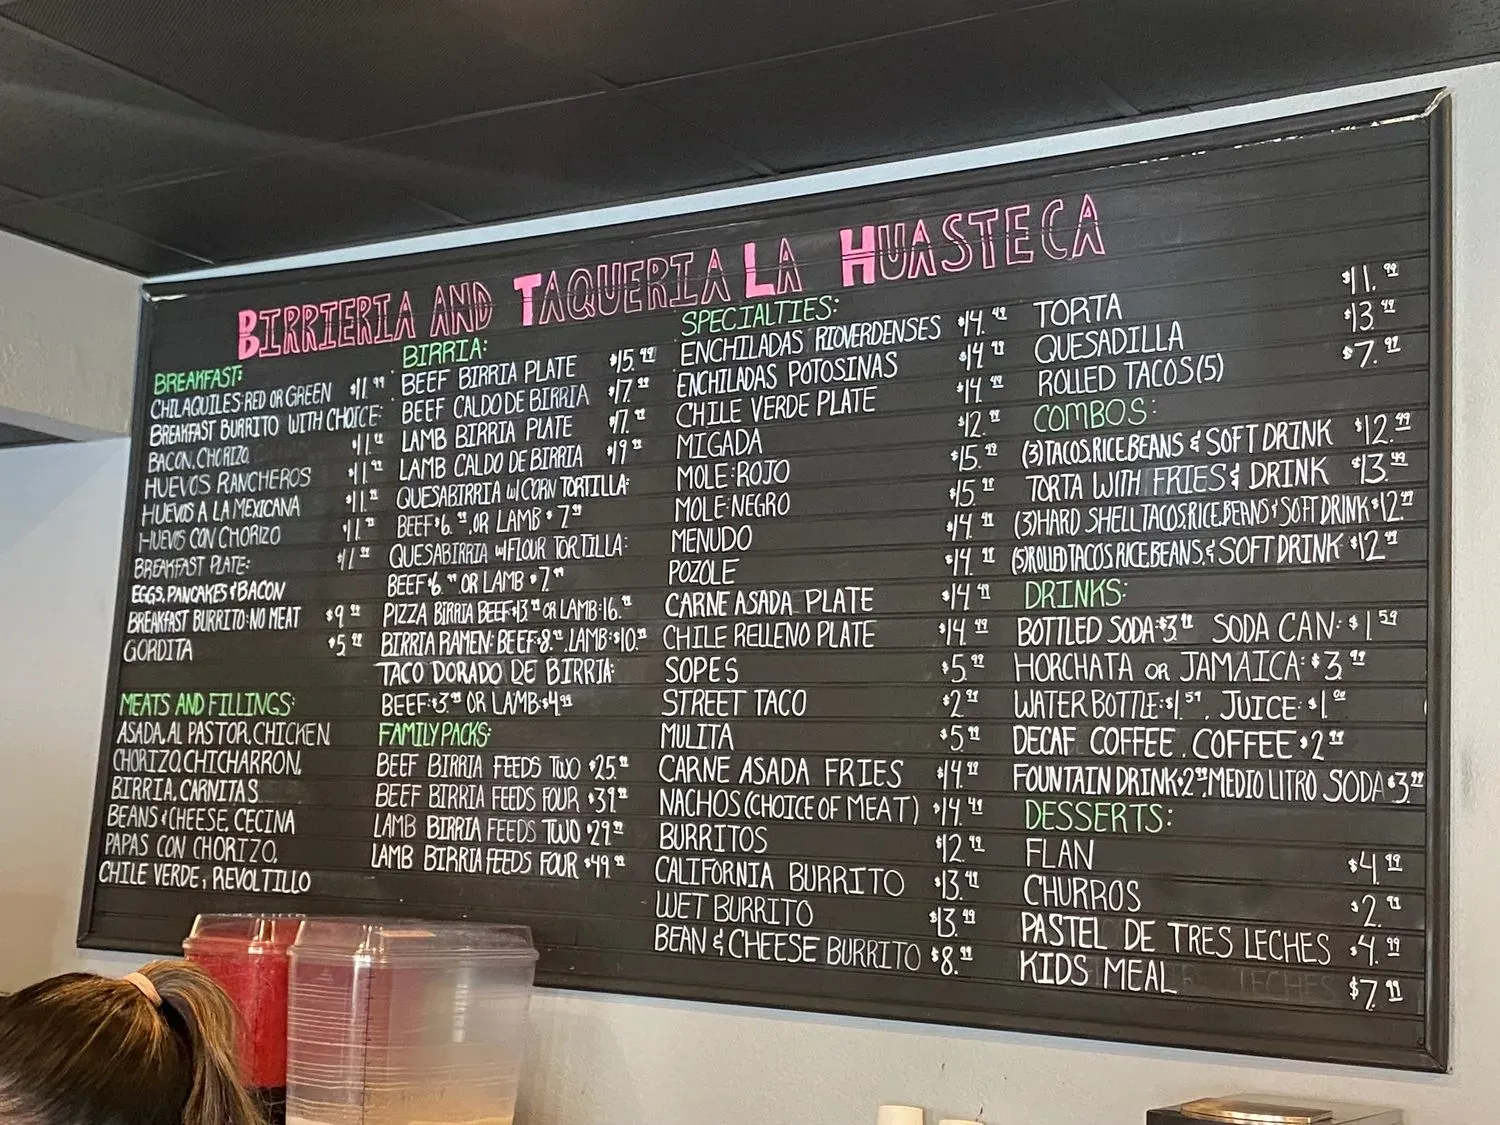 BIRRIERIA AND TAQUERIA LA HUASTECA
BREAKFAST:
CHILAQUILES:RED OR GREEN $11.99
BREAKFAST BURRITO WITH CHOICE:
BACON, CHORIZO
HUEVOS RANCHEROS
HUEVOS A LA MEXICANA
HUEVOS CON CHORIZO
BREAKFAST PLATE:
EGGS, PANCAKES & BACON
BREAKFAST BURRITO:NO MEAT $9.99
GORDITA $5.99
MEATS AND FILLINGS:
ASADA, AL PASTOR, CHICKEN,
CHORIZO, CHICHARRON,
BIRRIA, CARNITAS
BEANS & CHEESE, CECINA
PAPAS CON CHORIZO,
CHILE VERDE, REVOLTILLO
BIRRIA:
BEEF BIRRIA PLATE $15.49
BEEF CALDO DE BIRRIA $17.99
LAMB BIRRIA PLATE
LAMB CALDO DE BIRRIA $19.99
QUESABIRRIA W/CORN TORTILLA:
BEEF $6.99, OR LAMB $7.99
QUESABIRRIA W/FLOUR TORTILLA:
BEEF $6.99 OR LAMB $7.99
PIZZA BIRRIA BEEF $13.99 OR LAMB:16.99
BIRRIA RAMEN: BEEF:$8.99, LAMB:$10.99
TACO DORADO DE BIRRIA:
BEEF:$3.99 OR LAMB:$4.99
FAMILY PACKS:
BEEF BIRRIA FEEDS TWO $25.99
BEEF BIRRIA FEEDS FOUR $39.99
LAMB BIRRIA FEEDS TWO $29.99
LAMB BIRRIA FEEDS FOUR $49.99
SPECIALTIES:
ENCHILADAS RIOVERDENSES $14.49
ENCHILADAS POTOSINAS $14.99
CHILE VERDE PLATE $14.99
MIGADA $12.99
MOLE:ROJO $15.99
MOLE:NEGRO $15.99
MENUDO $14.99
POZOLE $14.99
CARNE ASADA PLATE $14.49
CHILE RELLENO PLATE $14.99
SOPES $5.99
STREET TACO $2.99
MULITA $5.99
CARNE ASADA FRIES $14.99
NACHOS (CHOICE OF MEAT) $14.49
BURRITOS $12.49
CALIFORNIA BURRITO $13.49
WET BURRITO $13.99
BEAN & CHEESE BURRITO $8.99
TORTA $11.99
QUESADILLA $13.49
ROLLED TACOS(5) $7.99
COMBOS:
(3)TACOS, RICE, BEANS & SOFT DRINK $12.49
TORTA WITH FRIES & DRINK $13.49
(3)HARD SHELL TACOS, RICE, BEANS & SOFT DRINK $12.99
(5)ROLLED TACOS, RICE, BEANS, & SOFT DRINK $12.99
DRINKS:
BOTTLED SODA:$3.99 SODA CAN: $1.59
HORCHATA OR JAMAICA: $3.99
WATER BOTTLE:$1.59, JUICE: $1.00
DECAF COFFEE, COFFEE $2.99
FOUNTAIN DRINK $2.99, MEDIO LITRO SODA $3.99
DESSERTS:
FLAN $4.99
CHURROS $2.99
PASTEL DE TRES LECHES $4.99
KIDS MEAL $7.99